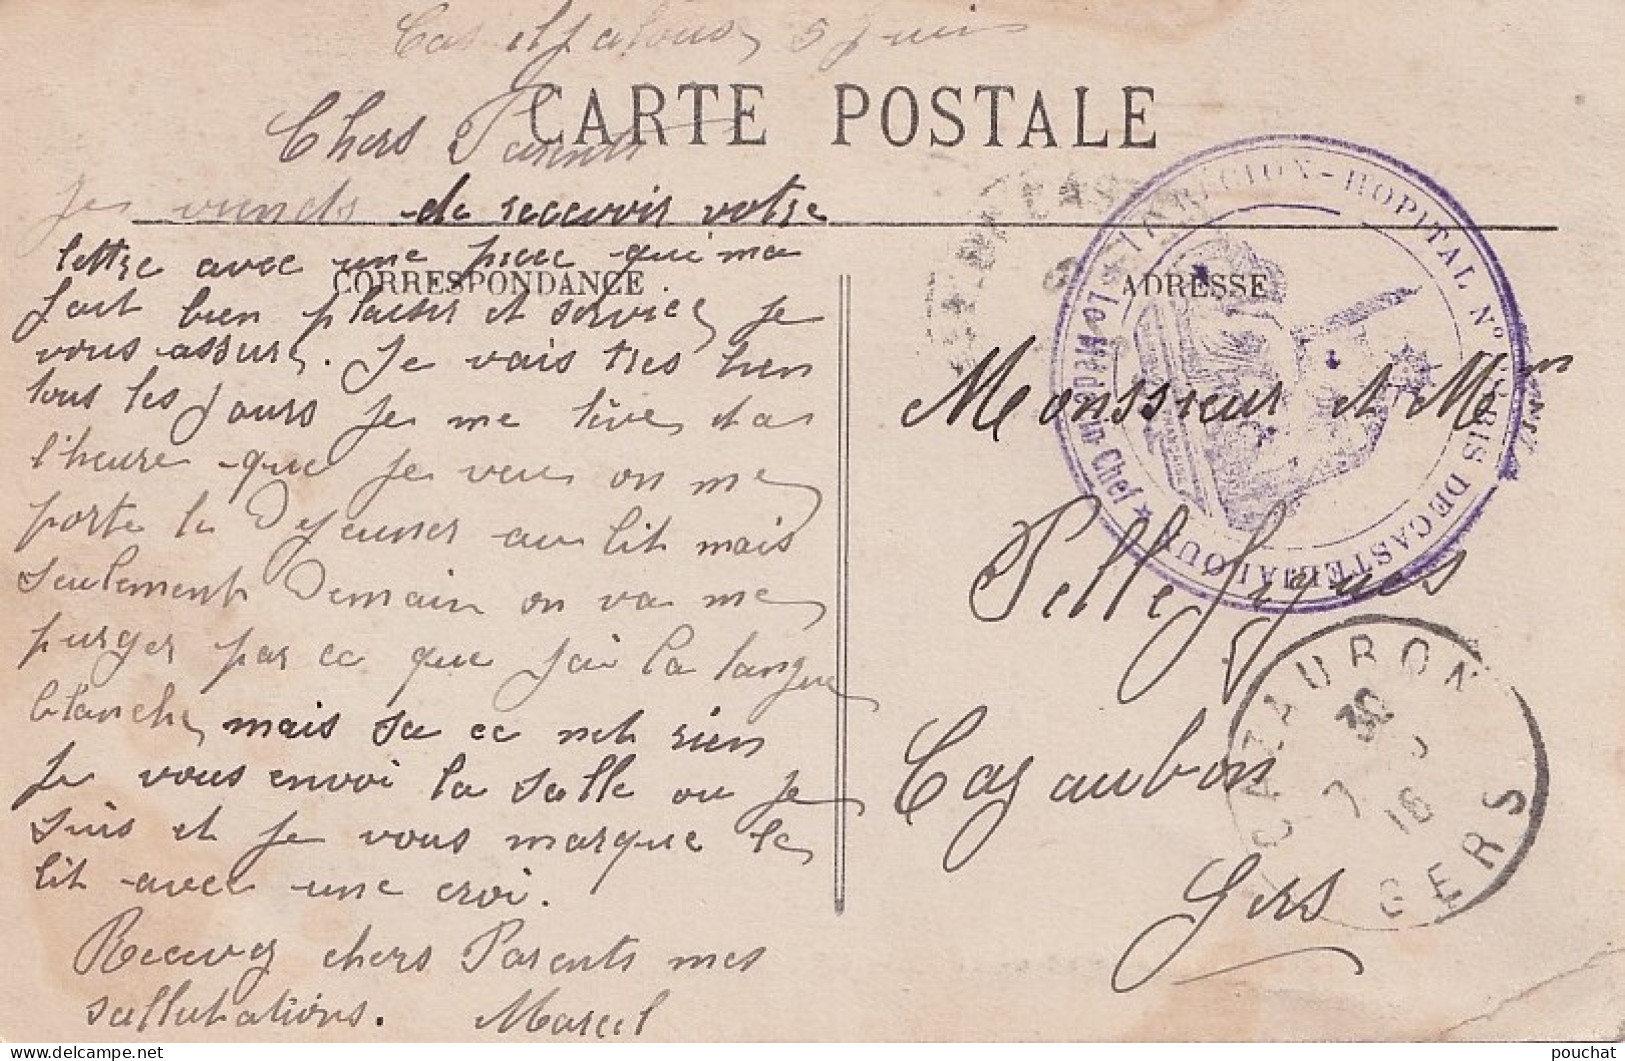 Casteljaloux, 5 Juin
CARTE POSTALE
Chers Parents
Je viends de recevoir votre
lettre avec une piece qui ma
CORRESPONDANCE
fait bien plaisir et service, je
vous assure. Je vais tres bien
tous les jours je me lève, da
l'heure que je veux on me
porte le Dejeuner au lit mais
seulement Demain on va me
purger par ce que j'ai la langue
blanche, mais sa ce net rien
Je vous envoi la salle ou je
suis et je vous marque le
lit avec une croi.
Recevez chers Parents mes
sallutations. Marcel
ADRESSE
RÉGION - HOPITAL N° BIS DE CASTELJALOUX
Le Médecin Chef
Monssieur et Mm
Pellefigues
Cazaubon
Gers
CAZAUBON
30
7 16
GERS
pouchat